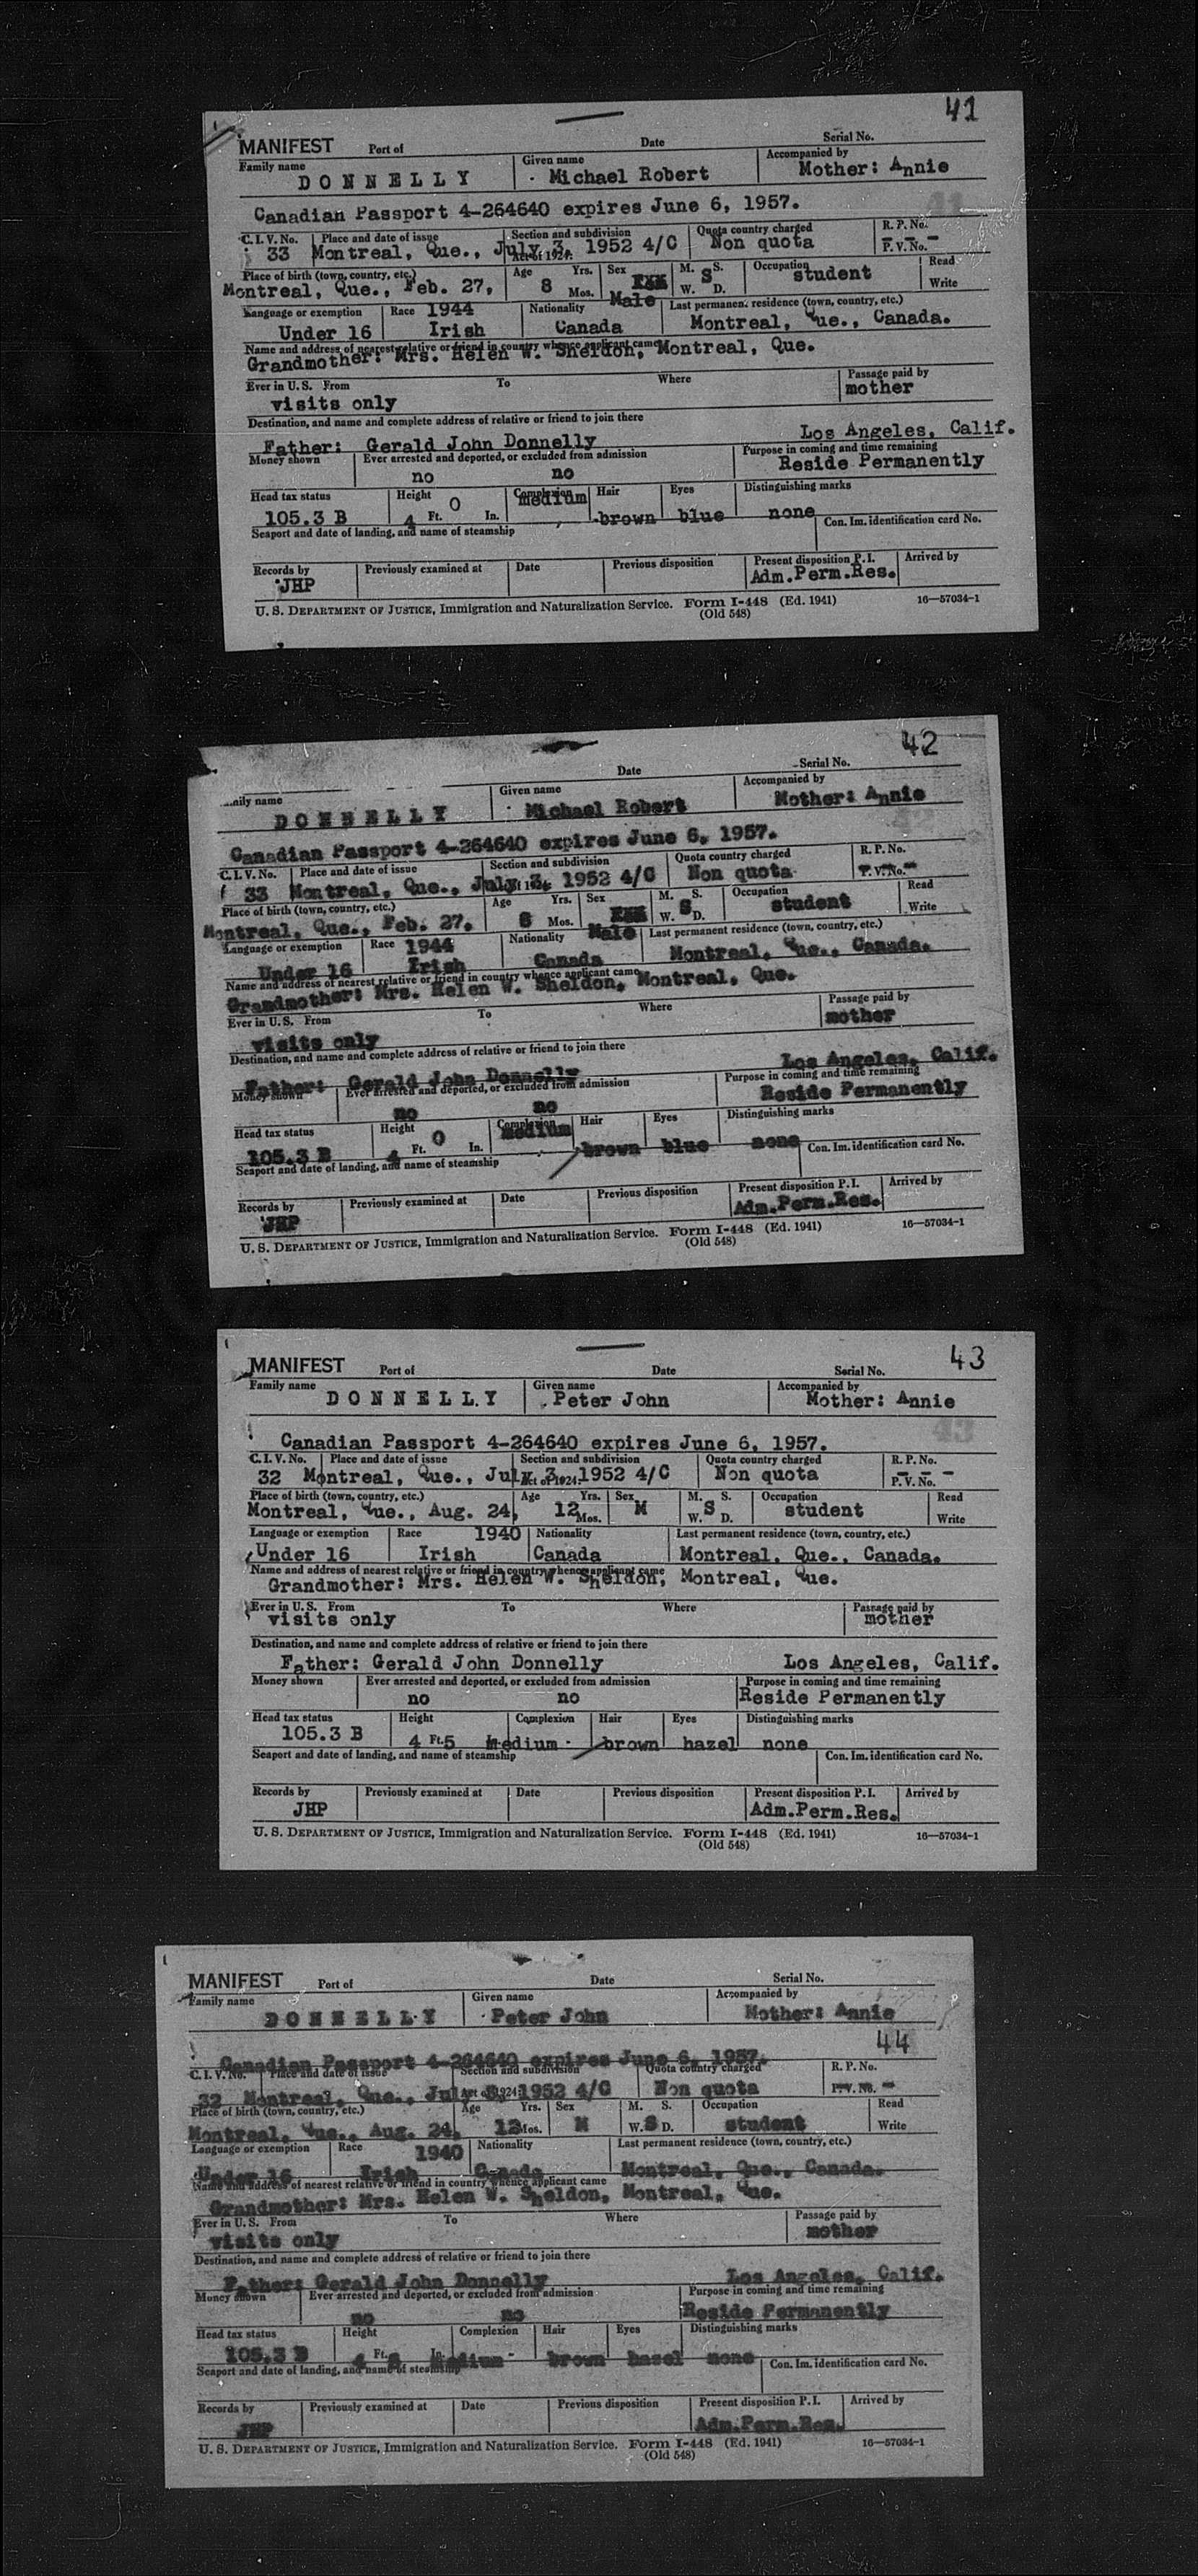 41
MANIFEST Port of Date Serial No.
Family name Given name Accompanied by
DONNELLY Michael Robert Mother: Annie
Canadian Passport 4-264640 expires June 6, 1957.
C. I. V. No. Place and date of issue Section and subdivision Quota country charged R. P. No.
33 Montreal, Que., July 3, 1952 4/C Non quota
Act of 1924: P. V. No. -
Place of birth (town, country, etc.) Age Yrs. Sex M. S. Occupation Read
Montreal, Que., Feb. 27, 8 Mos. W. S D. student Write
Language or exemption Race 1944 Nationality Male Last permanent residence (town, country, etc.)
Under 16 Irish Canada Montreal, Que., Canada.
Name and address of nearest relative or friend in country whence applicant came
Grandmother: Mrs. Helen W. Sheldon, Montreal, Que.
Ever in U. S. From To Where Passage paid by
visits only mother
Destination, and name and complete address of relative or friend to join there
Father: Gerald John Donnelly Los Angeles, Calif.
Money shown Ever arrested and deported, or excluded from admission Purpose in coming and time remaining
no no Reside Permanently
Head tax status Height Complexion Hair Eyes Distinguishing marks
105.3 B 4 Ft. 0 In. medium brown blue none
Seaport and date of landing, and name of steamship Con. Im. identification card No.
Records by Previously examined at Date Previous disposition Present disposition P. I. Arrived by
JHP Adm.Perm.Res.
U. S. DEPARTMENT OF JUSTICE, Immigration and Naturalization Service. Form I-448 (Ed. 1941) 16—57034-1
(Old 548)
42
Date Serial No.
Family name Given name Accompanied by
DONNELLY Michael Robert Mother: Annie
Canadian Passport 4-264640 expires June 6, 1957.
C. I. V. No. Place and date of issue Section and subdivision Quota country charged R. P. No.
33 Montreal, Que., July 3, 1952 4/C Non quota P. V. No.
Place of birth (town, country, etc.) Age Yrs. Sex M. S. Occupation Read
Montreal, Que., Feb. 27, 8 Mos. W. S D. student Write
Language or exemption Race 1944 Nationality Male Last permanent residence (town, country, etc.)
Under 16 Irish Canada Montreal, Que., Canada.
Name and address of nearest relative or friend in country whence applicant came
Grandmother: Mrs. Helen W. Sheldon, Montreal, Que.
Ever in U. S. From To Where Passage paid by
visits only mother
Destination, and name and complete address of relative or friend to join there
Father: Gerald John Donnelly Los Angeles, Calif.
Money shown Ever arrested and deported, or excluded from admission Purpose in coming and time remaining
no no Reside Permanently
Head tax status Height Complexion Hair Eyes Distinguishing marks
105.3 B 4 Ft. 0 In. medium brown blue none
Seaport and date of landing, and name of steamship Con. Im. identification card No.
Records by Previously examined at Date Previous disposition Present disposition P. I. Arrived by
JHP Adm.Perm.Res.
U. S. DEPARTMENT OF JUSTICE, Immigration and Naturalization Service. Form I-448 (Ed. 1941) 16—57034-1
(Old 548)
43
MANIFEST Port of Date Serial No.
Family name Given name Accompanied by
DONNELLY Peter John Mother: Annie
Canadian Passport 4-264640 expires June 6, 1957.
C. I. V. No. Place and date of issue Section and subdivision Quota country charged R. P. No.
32 Montreal, Que., July 3, 1952 4/C Non quota
Act of 1924: P. V. No. -
Place of birth (town, country, etc.) Age Yrs. Sex M. S. Occupation Read
Montreal, Que., Aug. 24, 12 Mos. M W. S D. student Write
Language or exemption Race 1940 Nationality Last permanent residence (town, country, etc.)
Under 16 Irish Canada Montreal, Que., Canada.
Name and address of nearest relative or friend in country whence applicant came
Grandmother: Mrs. Helen W. Sheldon, Montreal, Que.
Ever in U. S. From To Where Passage paid by
visits only mother
Destination, and name and complete address of relative or friend to join there
Father: Gerald John Donnelly Los Angeles, Calif.
Money shown Ever arrested and deported, or excluded from admission Purpose in coming and time remaining
no no Reside Permanently
Head tax status Height Complexion Hair Eyes Distinguishing marks
105.3 B 4 Ft. 5 Medium brown hazel none
Seaport and date of landing, and name of steamship Con. Im. identification card No.
Records by Previously examined at Date Previous disposition Present disposition P. I. Arrived by
JHP Adm.Perm.Res.
U. S. DEPARTMENT OF JUSTICE, Immigration and Naturalization Service. Form I-448 (Ed. 1941) 16—57034-1
(Old 548)
MANIFEST Port of Date Serial No.
Family name Given name Accompanied by
DONNELLY Peter John Mother: Annie
44
Canadian Passport 4-264640 expires June 6, 1957.
C. I. V. No. Place and date of issue Section and subdivision Quota country charged R. P. No.
32 Montreal, Que., July 3, 1952 4/C Non quota P. V. No.
Place of birth (town, country, etc.) Age Yrs. Sex M. S. Occupation Read
Montreal, Que., Aug. 24, 12 Mos. M W. S D. student Write
Language or exemption Race 1940 Nationality Last permanent residence (town, country, etc.)
Under 16 Irish Canada Montreal, Que., Canada.
Name and address of nearest relative or friend in country whence applicant came
Grandmother: Mrs. Helen W. Sheldon, Montreal, Que.
Ever in U. S. From To Where Passage paid by
visits only mother
Destination, and name and complete address of relative or friend to join there
Father: Gerald John Donnelly Los Angeles, Calif.
Money shown Ever arrested and deported, or excluded from admission Purpose in coming and time remaining
no no Reside Permanently
Head tax status Height Complexion Hair Eyes Distinguishing marks
105.3 B 4 Ft. In. Medium brown hazel none
Seaport and date of landing, and name of steamship Con. Im. identification card No.
Records by Previously examined at Date Previous disposition Present disposition P. I. Arrived by
JHP Adm.Perm.Res.
U. S. DEPARTMENT OF JUSTICE, Immigration and Naturalization Service. Form I-448 (Ed. 1941) 16—57034-1
(Old 548)